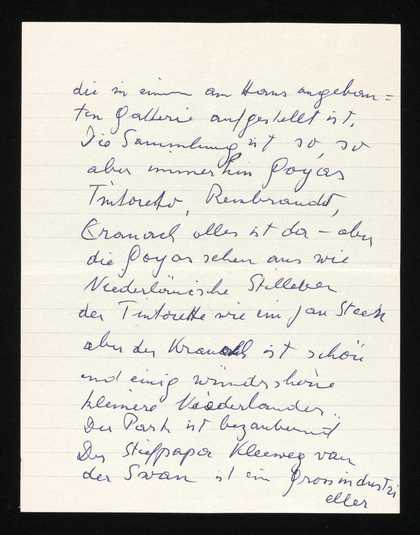 die in einem am Haus angebau=
ten Gallerie aufgestellt ist.
Die Sammlung ist so, so
aber immerhin Goyas
Tintoretto, Rembrandt,
Cranach alles ist da – aber
die Goyas sehen aus wie
Niederländische Stilleben
der Tintorette wie ein Jan Steen
aber der Kranach ist schön
und einig wunderschöne
kleinere Niederlander..
Der Park ist bezaubernd
Der Stiefpapa Kleeweg van
der Swan ist ein Grossindustri
eller